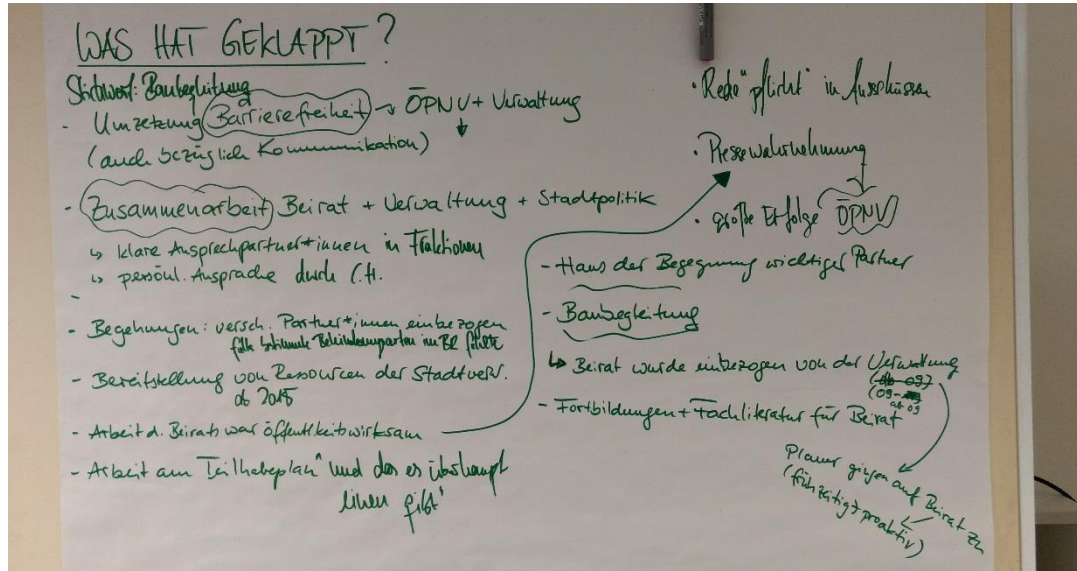 WAS HAT GEKLAPPT?
Stichwort: Baubegleitung
- Umzetzung Barrierefreiheit → ÖPNV + Verwaltung
(auch bezüglich Kommunikation)
- Zusammenarbeit Beirat + Verwaltung + Stadtpolitik
↳ klare Ansprechpartner*innen in Fraktionen
↳ persönl. Ansprache durch C.H.
-
- Begehungen: versch. Partner*innen einbezogen
falls bestimmte im BR fehlte
- Bereitstellung von Ressourcen der Stadtverw.
ab 2015
- Arbeit d. Beirats war öffentlkeitswirksam
- Arbeit am "Teilhabeplan" und das es überhaupt
einen gibt
• Rede"pflicht" in Ausschüssen
• Pressewahrnehmung
• große Erfolge ÖPNV
- Haus der Begegnung wichtiger Partner
- Baubegleitung
↳ Beirat wurde einbezogen von der Verwaltung
(09-
ab 09
- Fortbildungen + Fachliteratur für Beirat
Planer gingen auf Beirat zu
(frühzeitig + proaktiv)